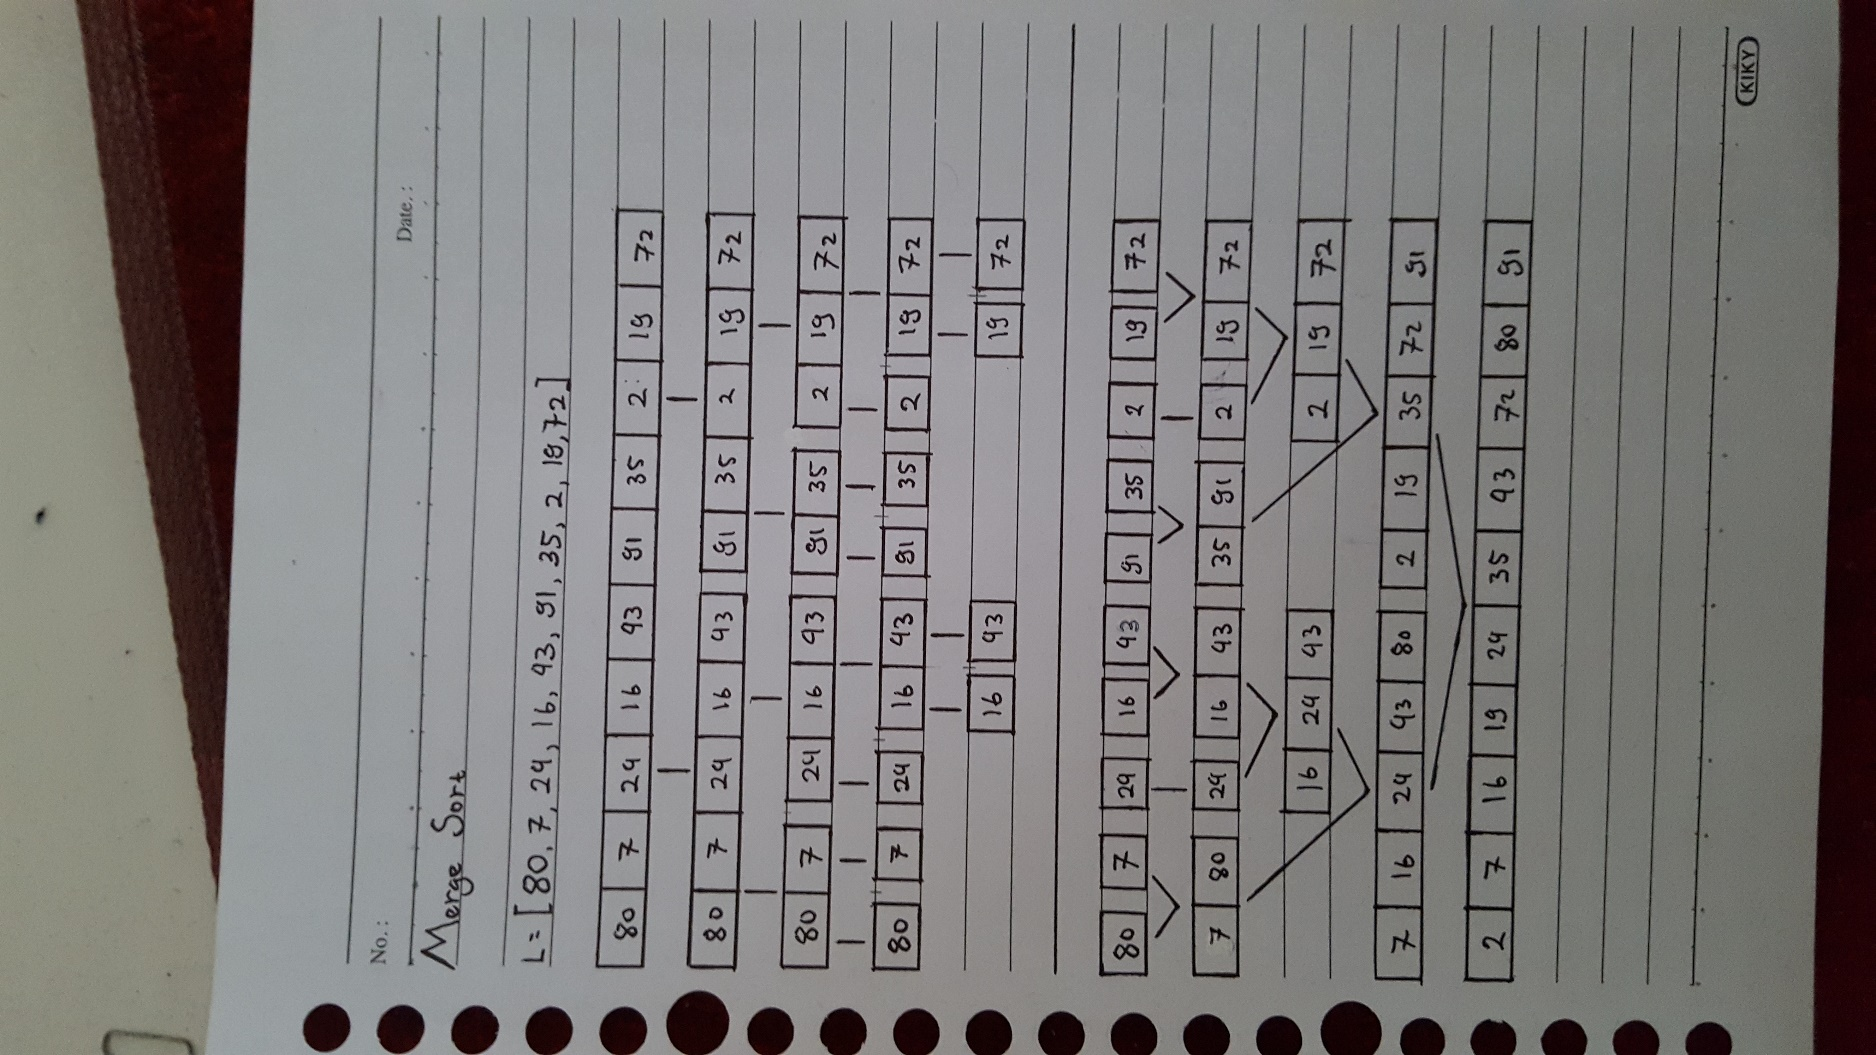 No.:
Date.:
Merge Sort
L= [80, 7, 24, 16, 43, 91, 35, 2, 19, 72]
80 7 24 16 43 91 35 2 19 72
80 7 24 16 43 91 35 2 19 72
80 7 24 16 43 91 35 2 19 72
80 7 24 16 43 91 35 2 19 72
16 43 19 72
80 7 24 16 43 91 35 2 19 72
7 80 24 16 43 35 91 2 19 72
16 24 43 2 19 72
7 16 24 43 80 2 19 35 72 91
2 7 16 19 24 35 43 72 80 91
KIKY